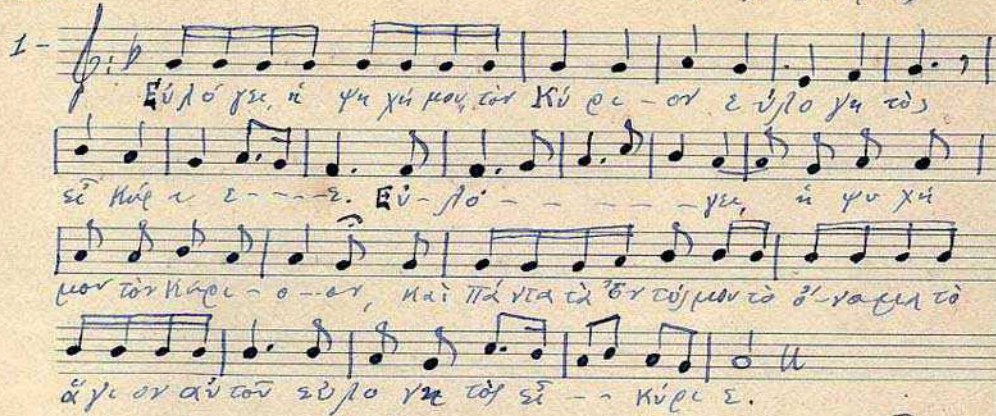 1 -
Εὐλόγει, ἡ ψυχή μου, τὸν Κύρι - ον εὐλογητὸς
εἶ Κύρι ε - - - - ε. Εὐ - λό - - - - - - γει, ἡ ψυχή
μου τὸν Κύρι - ο - - ον, καὶ πάντα τὰ ἐντός μου τὸ ὄ - νομα τὸ
ἅγιον αὐτοῦ εὐλογητὸς εἶ - - Κύριε.